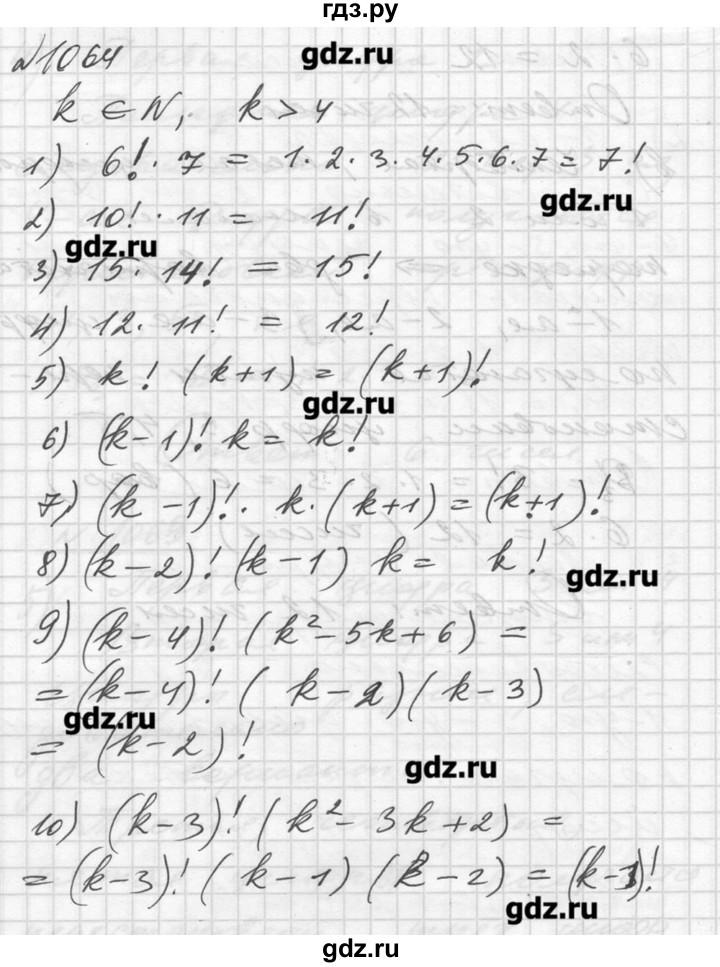 гдз.ру
gdz.ru
№1064
k ∈ N, k > 4
1) 6! · 7 = 1 · 2 · 3 · 4 · 5 · 6 · 7 = 7!
gdz.ru
2) 10! · 11 = 11!
gdz.ru
3) 15 · 14! = 15!
4) 12 · 11! = 12!
5) k! (k+1) = (k+1)!
gdz.ru
6) (k-1)! k = k!
7) (k-1)! · k · (k+1) = (k+1)!
8) (k-2)! (k-1) k = k!
gdz.ru
9) (k-4)! (k²-5k+6) =
= (k-4)! (k-2)(k-3)
gdz.ru
= (k-2)!
gdz.ru
10) (k-3)! (k²-3k+2) =
= (k-3)! (k-1) (k-2) = (k-1)!
gdz.ru
gdz.ru